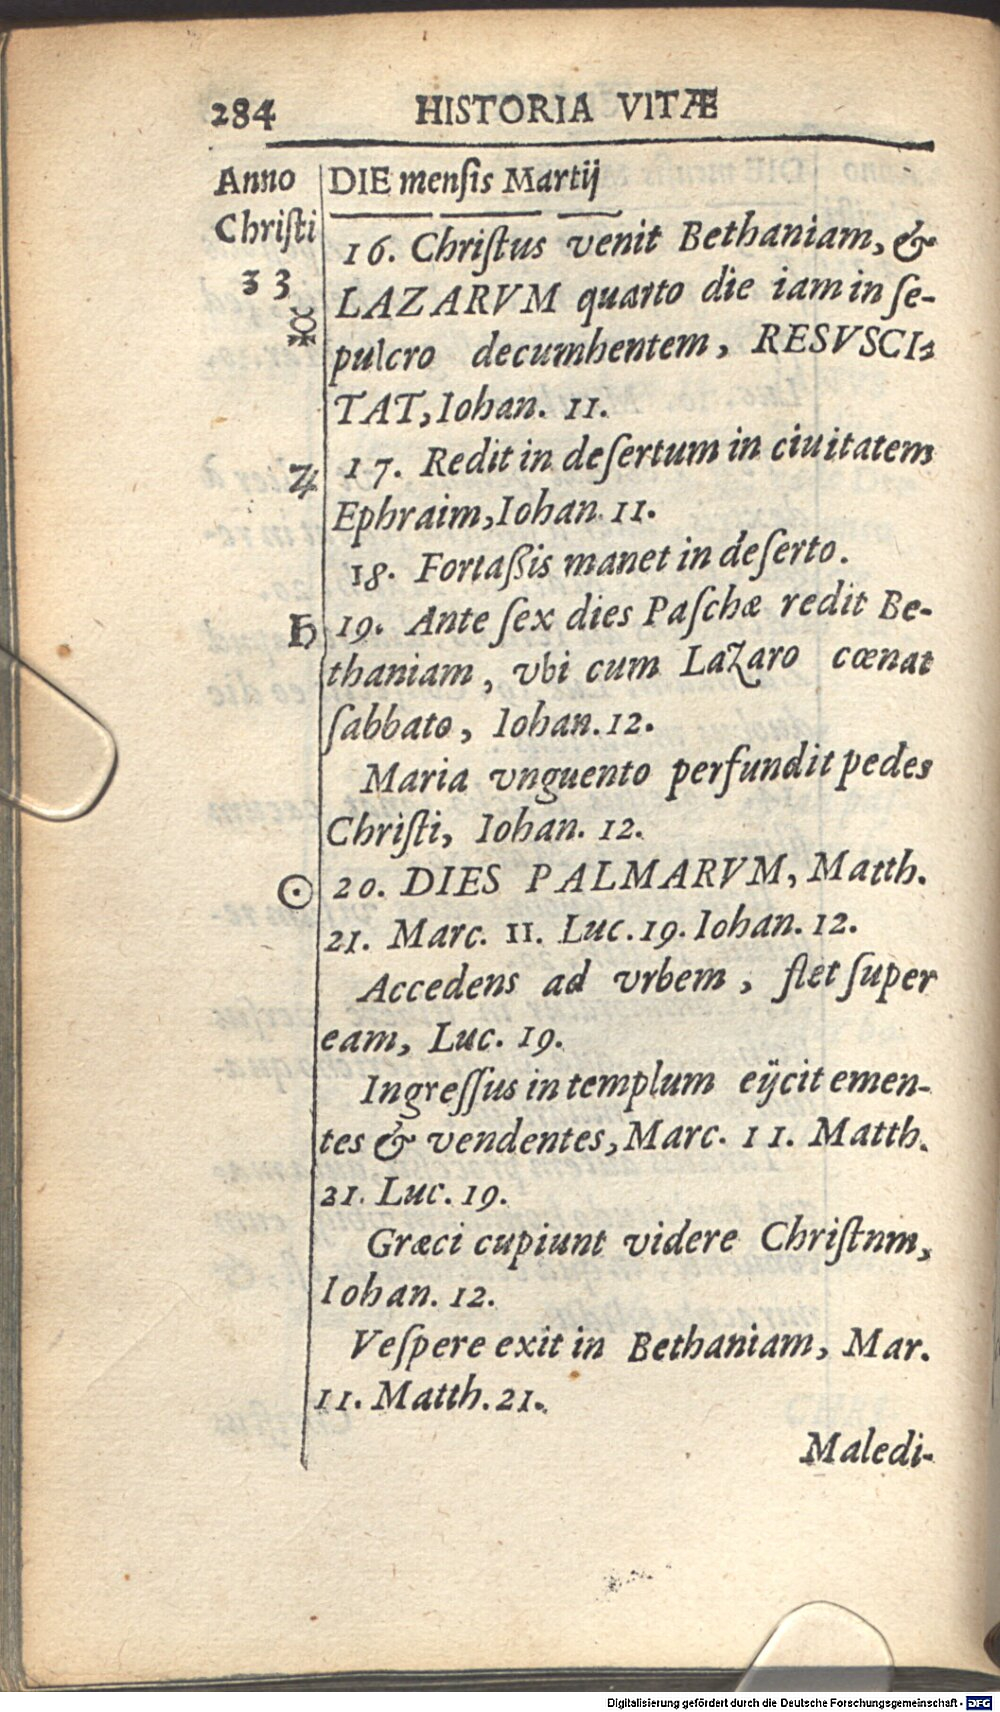 284 HISTORIA VITÆ
Anno
Chriſti
33
☿
♃
♄
☉
DIE menſis Martij
16. Chriſtus venit Bethaniam, &
LAZARVM quarto die iam in ſe-
pulcro decumhentem, RESVSCI-
TAT, Iohan. 11.
17. Redit in deſertum in ciuitatem
Ephraim, Iohan. 11.
18. Fortaßis manet in deſerto.
19. Ante ſex dies Paſchæ redit Be-
thaniam, vbi cum Lazaro cœnat
ſabbato, Iohan. 12.
Maria vnguento perfundit pedes
Chriſti, Iohan. 12.
20. DIES PALMARVM, Matth.
21. Marc. 11. Luc. 19. Iohan. 12.
Accedens ad vrbem, flet ſuper
eam, Luc. 19.
Ingreſſus in templum eijcit emen-
tes & vendentes, Marc. 11. Matth.
21. Luc. 19.
Græci cupiunt videre Chriſtnm,
Iohan. 12.
Veſpere exit in Bethaniam, Mar.
11. Matth. 21.
Maledi-
Digitalisierung gefördert durch die Deutsche Forschungsgemeinschaft - DFG